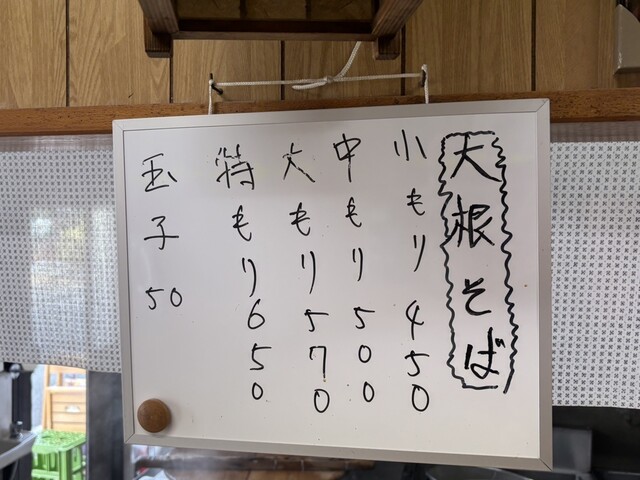 大根そば
小もり450
中もり500
大もり570
特もり650
玉子50